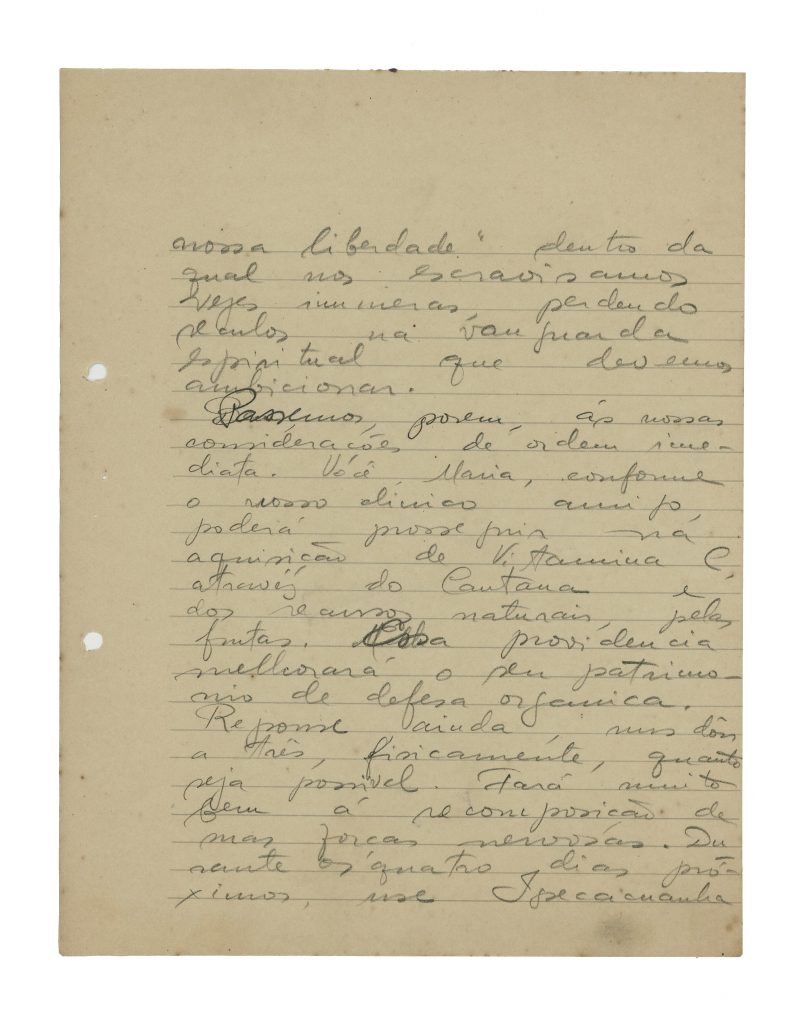 nossa liberdade" dentro da
qual nos escravisamos
vezes inumeras, perdendo
seculos na vanguarda
espiritual que devemos
ambicionar.
Passemos, porem, ás nossas
considerações de ordem ime-
diata. Você, Maria, conforme
o nosso clinico amigo,
poderá prosseguir na
aquisição de Vitamina C,
através do Cantana e
dos recursos naturais, pelas
frutas. Essa providencia
melhorará o seu patrimo-
nio de defesa organica.
Repouse, ainda, uns dois
a três, fisicamente, quanto
seja possivel. Fará muito
bem á recomposição de
suas forças nervosas. Du
rante os quatro dias pró-
ximos, use Ipecacuanha